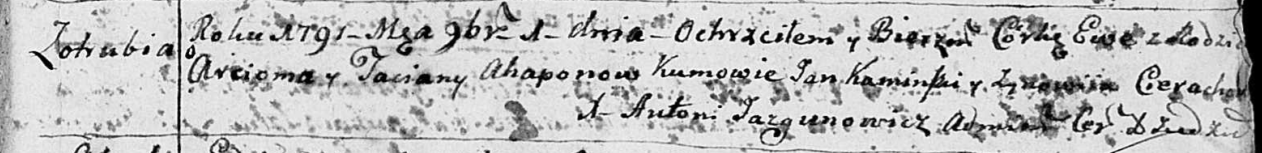 Zotrubia
Roku 1791 – Mca 9br – 1 – dnia – Ochrzciłem y Bierzm Corkę Ewe z Rodzi
Arcioma y Taciany Ahaponow Kumowie Jan Kaminski y Zynowiia
X Antoni Jazgunowicz Admin Cer